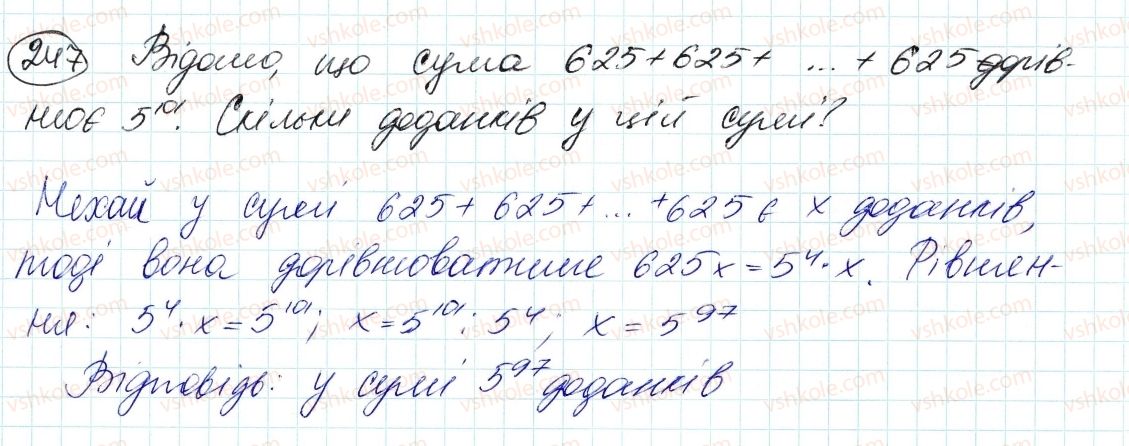 247 Відомо, що сума 625+625+ ... + 625 дорів-
нює 5¹⁰¹. Скільки доданків у цій сумі?
Нехай у сумі 625+ 625+...+625 є x доданків,
тоді вона дорівнюватиме 625x=5⁴·x. Рівнян-
ня: 5⁴·x=5¹⁰¹; x=5¹⁰¹:5⁴; x=5⁹⁷
Відповідь: у сумі 5⁹⁷ доданків